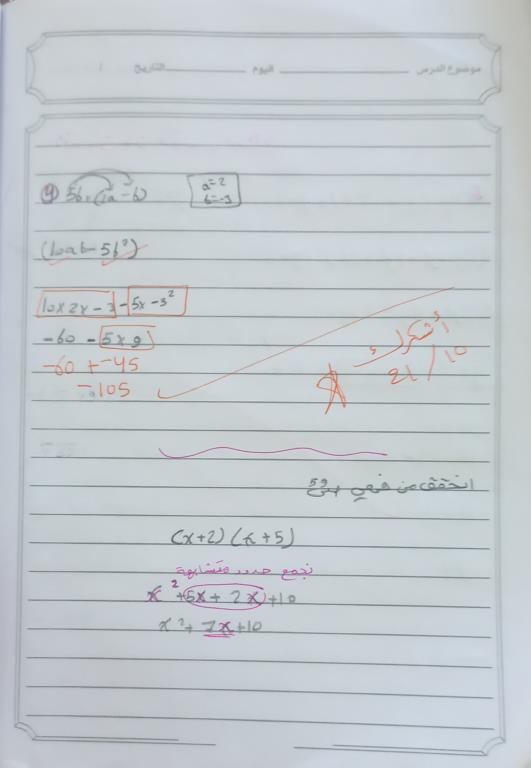 موضوع الدرس اليوم التاريخ /
4) 5b (2a - b) a=2 b=-3
(10ab - 5b²)
10×2×-3 - 5×-3²
-60 - 5×9
-60 + -45
-105
أشكرك
21/10
اتحقق من فهمي
(x+2) (x+5)
نجمع حدود متشابهة
x² + 5x + 2x + 10
x² + 7x + 10